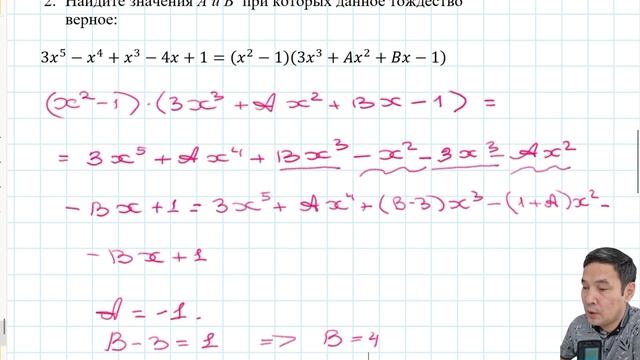 2. Найдите значения A и B при которых данное тождество
верное:
3x⁵ − x⁴ + x³ − 4x + 1 = (x² − 1)(3x³ + Ax² + Bx − 1)
(x²−1)·(3x³ + Ax² + Bx − 1) =
= 3x⁵ + Ax⁴ + Bx³ − x² − 3x³ − Ax²
− Bx + 1 = 3x⁵ + Ax⁴ + (B−3)x³ − (1+A)x² −
− Bx + 1
A = −1.
B − 3 = 1 => B = 4